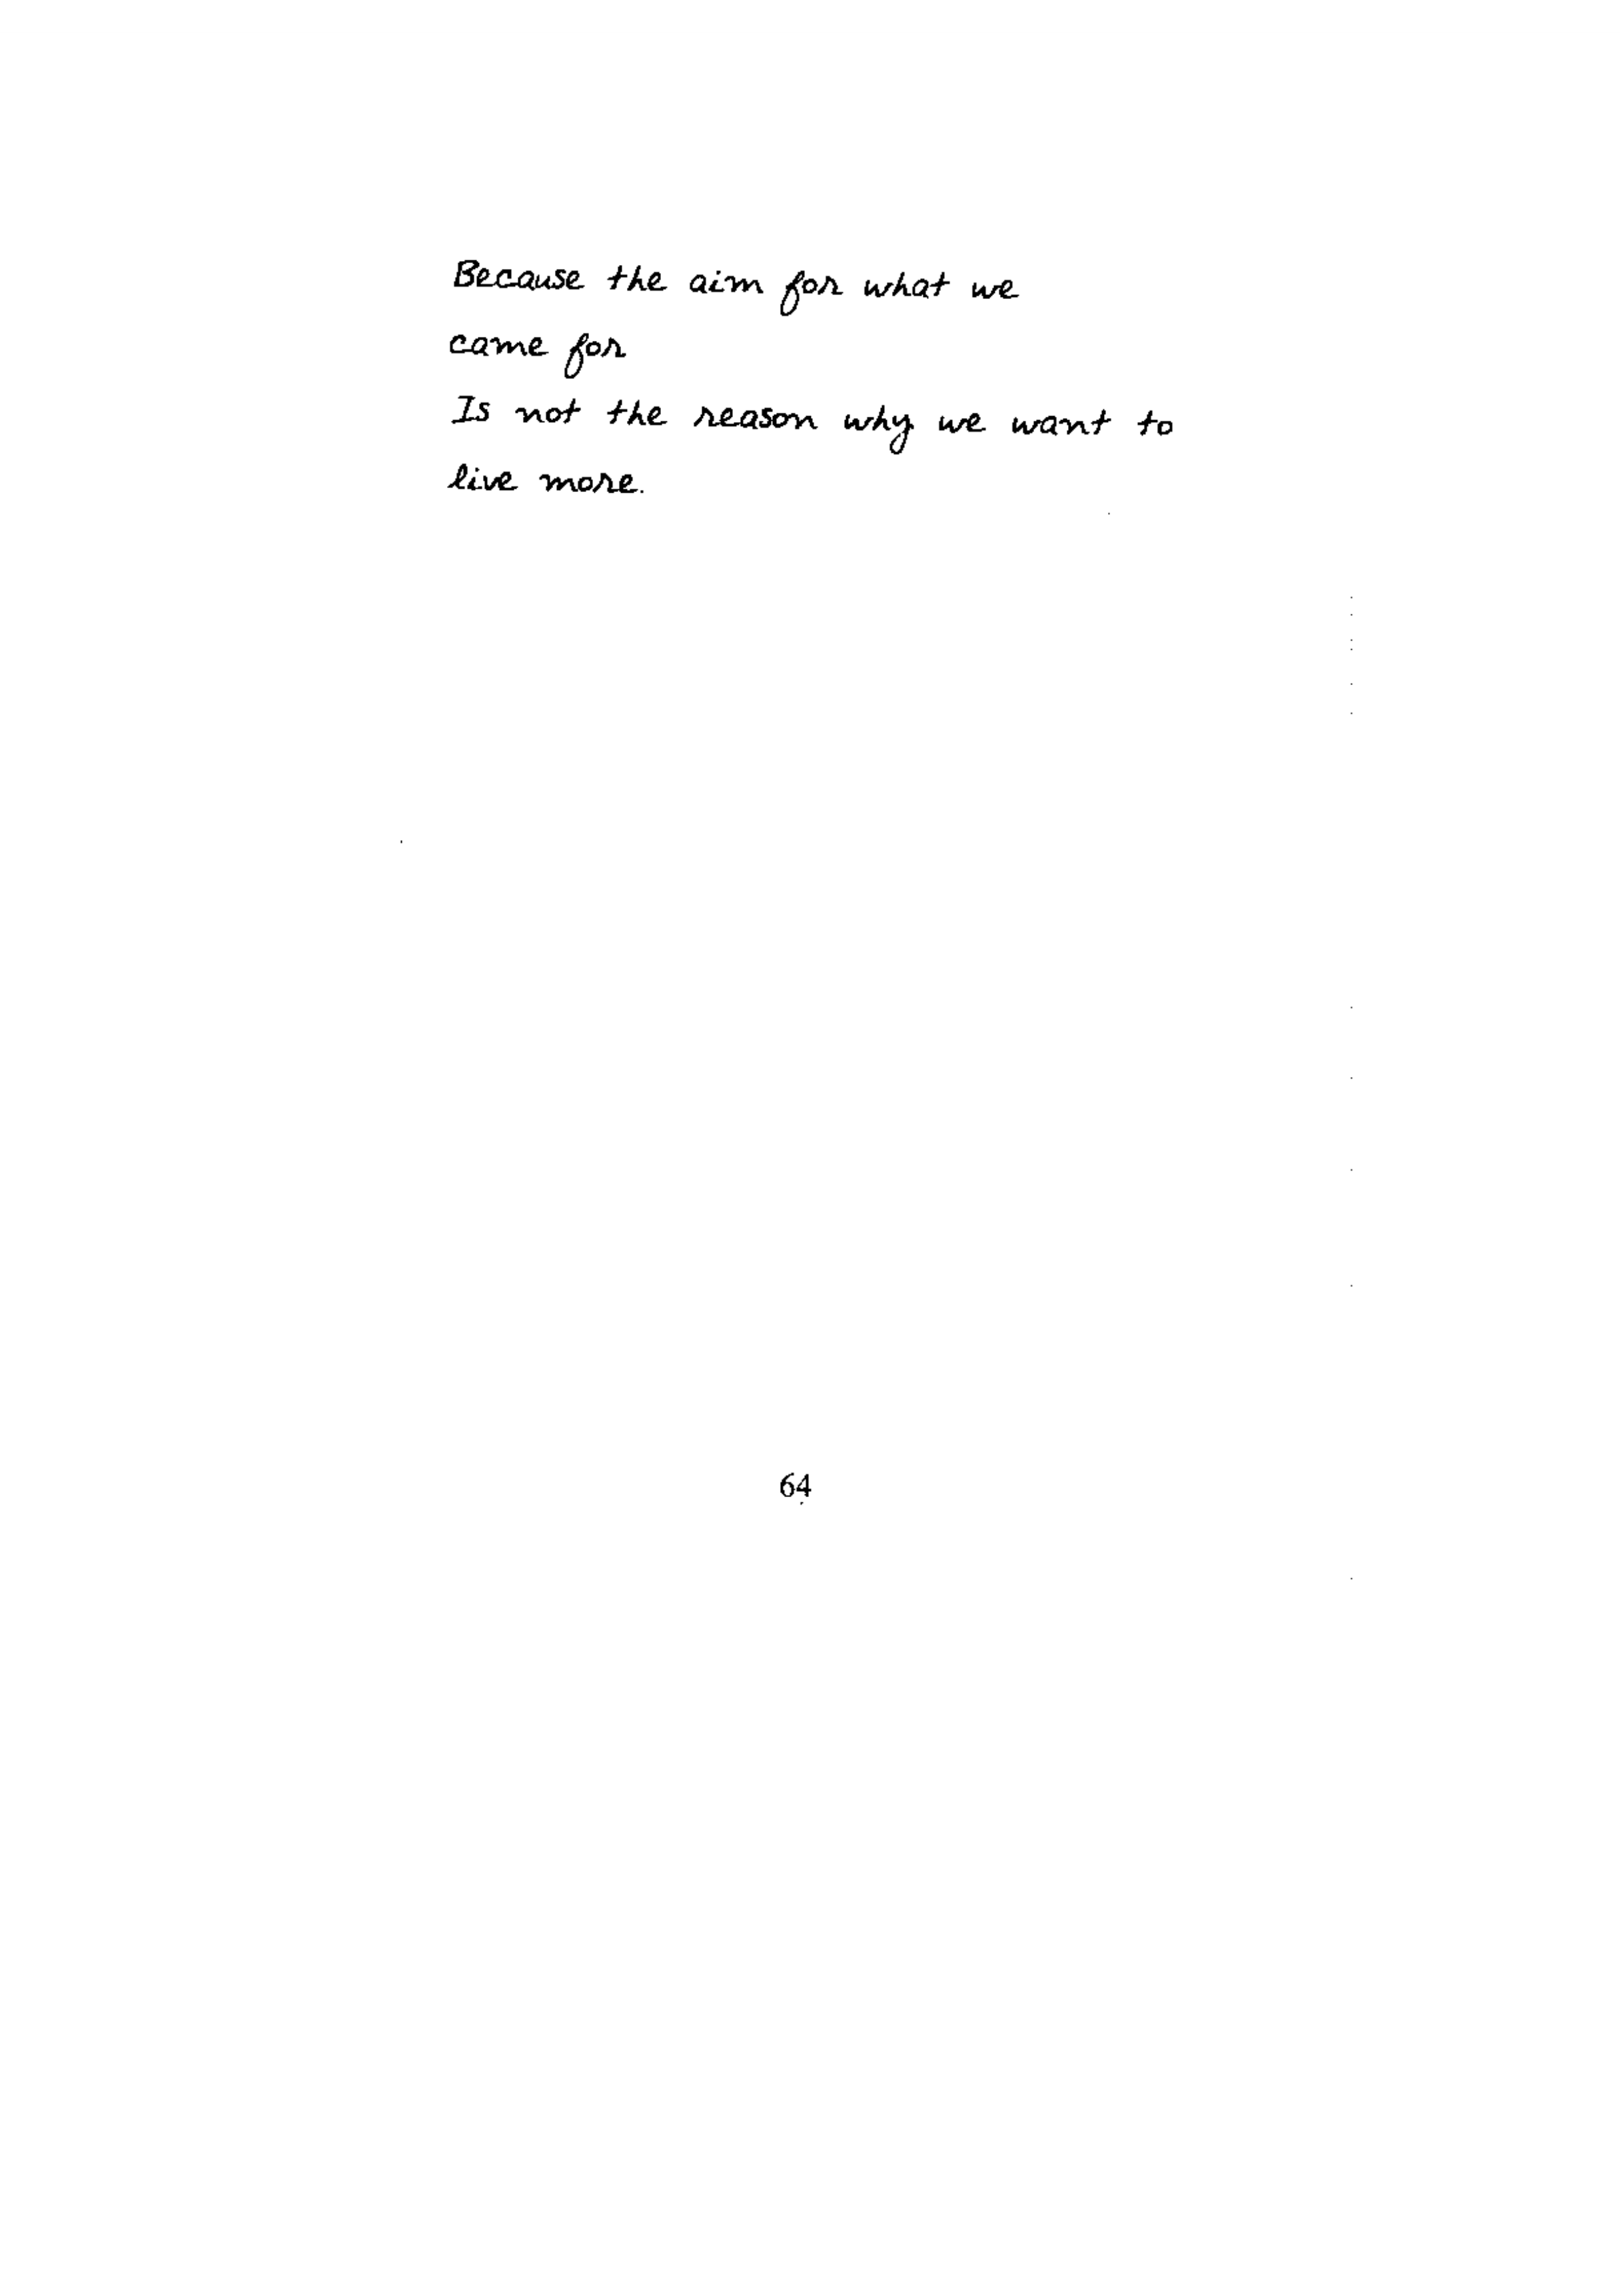 Because the aim for what we
came for
Is not the reason why we want to
live more.
64